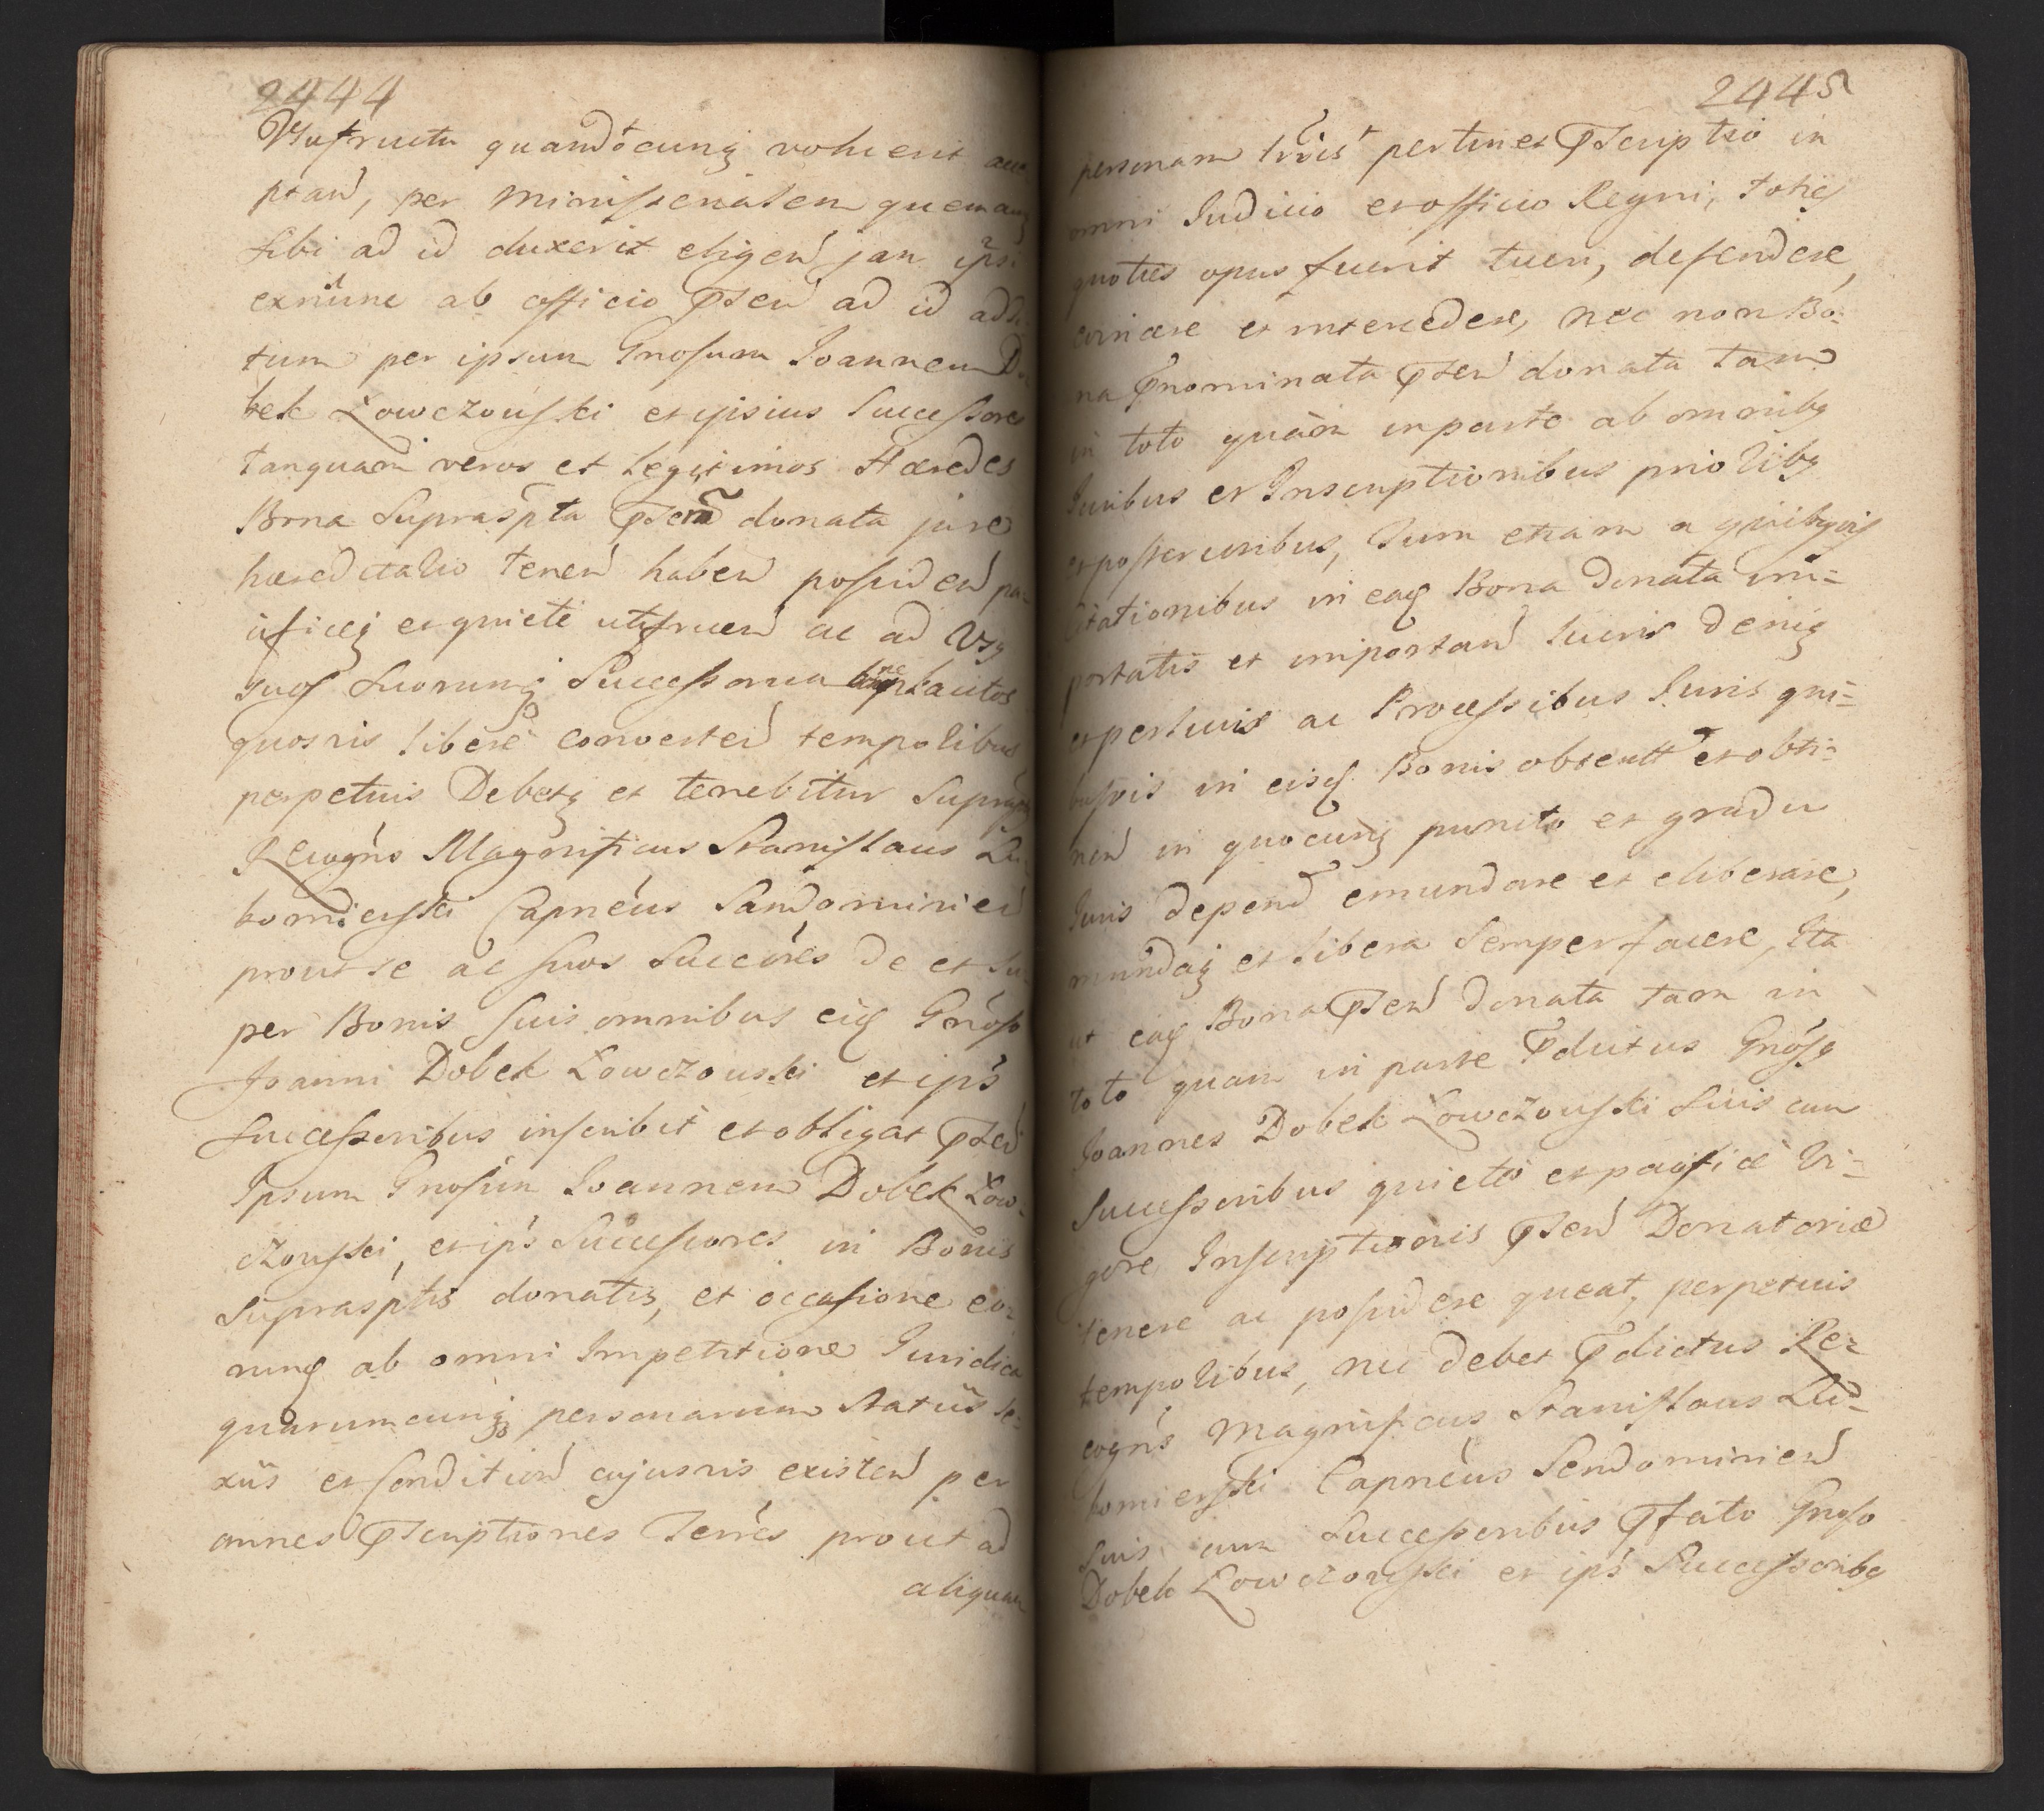 2444
Usufructu quandocunq voluerit acce
ptand, per Ministerialem quemcunq
sibi ad id duxerit eligend jam ipsi
exnunc ab officio pnten ad id addi
tum per ipsum Gnosum Joannem Do
bek Łowczouski et ipsius Successores
tanquam veros et legitimos Hæredes
Bona Suprasptа pnten donata jure
hæreditario tenend habend possidend pa
cificeq et quiete utifruend ac ad Usq
suos suorumq Successorum beneplacitos
quosvis libere convertend temporibus
perpetuis Debetq et tenebitur Supraspt
Recogns Magnificus Stanislaus Lu
bomierski Capneus Sandomirien
prout se ac suos Succeores de et su
per Bonis suis omnibus eiq Gnoso
Joanni Dobek Łowczouski et ips
successoribus inscribit et obligat pnten
Ipsum Gnosum Joannem Dobek Łow-
czouski, et ips Successores in Bonis
Suprasptis donatis, et occasione eo-
rumq ab omni Impetitione Juridica
quarumcunq personarum Status Se-
xus et Condition cujusvis existen per
omnes pscriptiones Terres prout ad
aliquam
2445
personam trris pertinet pscriptio in
omni Judicio et officio Regni, toties
quoties opus fuerit tueri, defendere,
evincere et intercedere, nec non Bo-
na pnominata pnten donata tam
in toto quam in parte ab omnibq
Juribus et Inscriptionibus priolibq
et posterioribus, Tum etiam a quibusvis
Citationibus in eaq Bona donata im-
portatis et importand lucris deniq
et perlucris ac Processibus Juris qui-
busvis in eisq Bonis obtentt et obti-
nen in quocunq puncto et gradu
Juris depend emundare et eliberare,
mundaq et libera semper facere, Ita
ut eaq Bona pnten donata tam in
toto quam in parte pdictus Gnosq
Joannes Dobek Łowczouski suis cum
Successoribus quiete et pacifice Vi-
gore Inscriptionis pnten Donatoriæ
tenere ac possidere queat, perpetuis
temporibus, nec debet pdictus Re-
cogns Magnificus Stanislaus Lu-
bomierski Capneus Sendomirien
suis cum Successoribus pfato Gnoso
Dobek Łowczouski et ips Successoribq